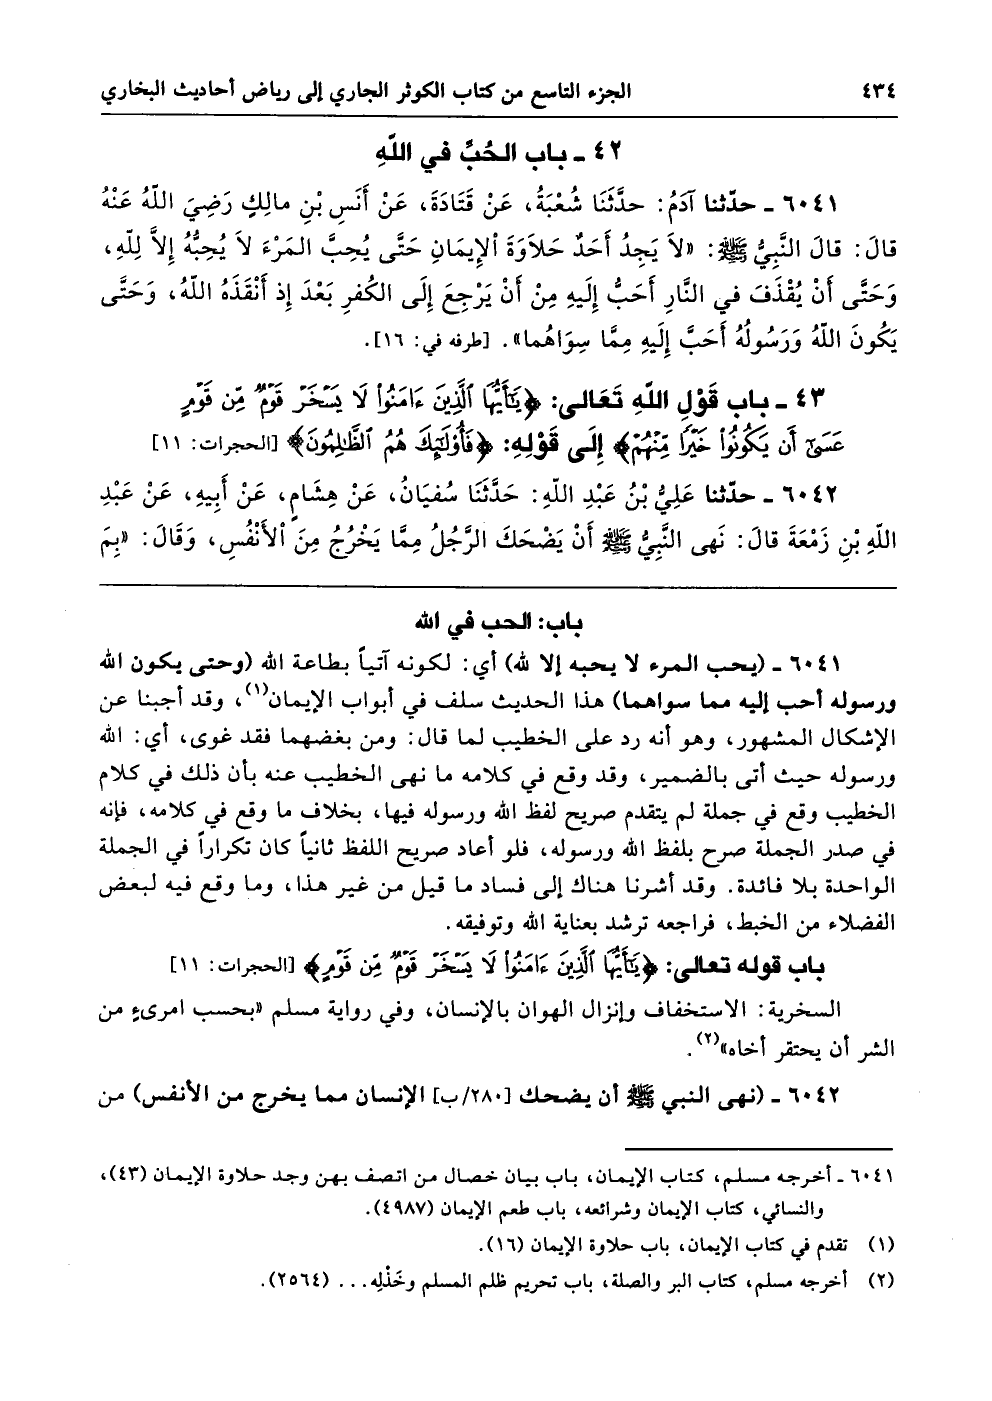 ٤٣٤ الجزء التاسع من كتاب الكوثر الجاري إلى رياض أحاديث البخاري
٤٢ ـ باب الحُبِّ في اللَّهِ
٦٠٤١ ـ حدّثنا آدَمُ: حدَّثَنَا شُعْبَةُ، عَنْ قَتَادَةَ، عَنْ أَنَسِ بْنِ مالِكٍ رَضِيَ اللَّهُ عَنْهُ
قالَ: قالَ النَّبِيُّ ﷺ: «لاَ يَجِدُ أَحَدٌ حَلاَوَةَ الإِيمَانِ حَتَّى يُحِبَّ المَرْءَ لاَ يُحِبُّهُ إِلاَّ لِلَّهِ،
وَحَتَّى أَنْ يُقْذَفَ في النَّارِ أَحَبُّ إِلَيهِ مِنْ أَنْ يَرْجِعَ إِلَى الكُفرِ بَعْدَ إِذ أَنْقَذَهُ اللَّهُ، وَحَتَّى
يَكُونَ اللَّهُ وَرَسُولُهُ أَحَبَّ إِلَيهِ مِمَّا سِوَاهُما». [طرفه في: ١٦].
٤٣ ـ باب قَوْلِ اللَّهِ تَعَالى: ﴿يَٰٓأَيُّهَا ٱلَّذِينَ ءَامَنُوا۟ لَا يَسْخَرْ قَوْمٌ مِّن قَوْمٍ
عَسَىٰٓ أَن يَكُونُوا۟ خَيْرًا مِّنْهُمْ﴾ إِلَى قَوْلِهِ: ﴿فَأُو۟لَٰٓئِكَ هُمُ ٱلظَّٰلِمُونَ﴾ [الحجرات: ١١]
٦٠٤٢ ـ حدّثنا عَلِيُّ بْنُ عَبْدِ اللَّهِ: حَدَّثَنَا سُفيَانُ، عَنْ هِشَامٍ، عَنْ أَبِيهِ، عَنْ عَبْدِ
اللَّهِ بْنِ زَمْعَةَ قالَ: نَهى النَّبِيُّ ﷺ أَنْ يَضْحَكَ الرَّجُلُ مِمَّا يَخْرُجُ مِنَ الأَنْفُسِ، وَقَالَ: «بِمَ
باب: الحب في الله
٦٠٤١ ـ (يحب المرء لا يحبه إلا لله) أي: لكونه آتياً بطاعة الله (وحتى يكون الله
ورسوله أحب إليه مما سواهما) هذا الحديث سلف في أبواب الإيمان(١)، وقد أجبنا عن
الإشكال المشهور، وهو أنه رد على الخطيب لما قال: ومن بغضهما فقد غوى، أي: الله
ورسوله حيث أتى بالضمير، وقد وقع في كلامه ما نهى الخطيب عنه بأن ذلك في كلام
الخطيب وقع في جملة لم يتقدم صريح لفظ الله ورسوله فيها، بخلاف ما وقع في كلامه، فإنه
في صدر الجملة صرح بلفظ الله ورسوله، فلو أعاد صريح اللفظ ثانياً كان تكراراً في الجملة
الواحدة بلا فائدة. وقد أشرنا هناك إلى فساد ما قيل من غير هذا، وما وقع فيه لبعض
الفضلاء من الخبط، فراجعه ترشد بعناية الله وتوفيقه.
باب قوله تعالى: ﴿يَٰٓأَيُّهَا ٱلَّذِينَ ءَامَنُوا۟ لَا يَسْخَرْ قَوْمٌ مِّن قَوْمٍ﴾ [الحجرات: ١١]
السخرية: الاستخفاف وإنزال الهوان بالإنسان، وفي رواية مسلم «بحسب امرىءٍ من
الشر أن يحتقر أخاه»(٢).
٦٠٤٢ ـ (نهى النبي ﷺ أن يضحك [٢٨٠/ب] الإنسان مما يخرج من الأنفس) من
٦٠٤١ ـ أخرجه مسلم، كتاب الإيمان، باب بيان خصال من اتصف بهن وجد حلاوة الإيمان (٤٣)،
والنسائي، كتاب الإيمان وشرائعه، باب طعم الإيمان (٤٩٨٧).
(١) تقدم في كتاب الإيمان، باب حلاوة الإيمان (١٦).
(٢) أخرجه مسلم، كتاب البر والصلة، باب تحريم ظلم المسلم وخَذْلِه... (٢٥٦٤).